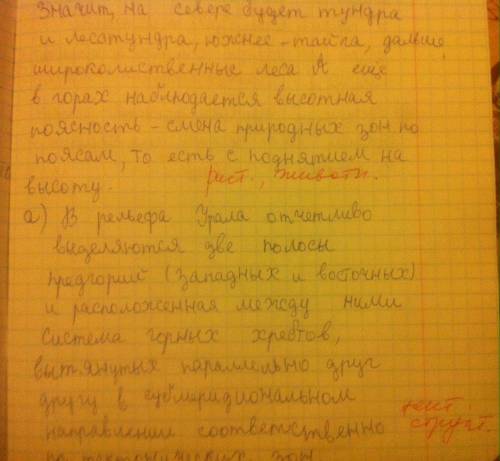 Значит, на севере будет тундра
и лесотундра, южнее - тайга, дальше
широколиственные леса А еще
в горах наблюдается высотная
поясность - смена природных зон по
поясам, то есть с поднятием на
высоту.
раст., животн.
а) В рельефа Урала отчетливо
выделяются две полосы
предгорий (западных и восточных)
и расположенная между ними
система горных хребтов,
вытянутых параллельно друг
другу в субмеридиональном
направлении соответственно
тект
структ.